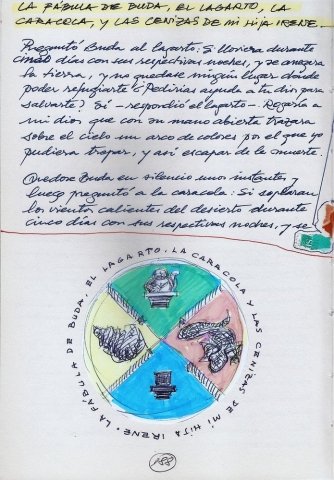 LA FÁBULA DE BUDA, EL LAGARTO, LA
CARACOLA, Y LAS CENIZAS DE MI HIJA IRENE.-
Preguntó Buda al lagarto: Si lloviera durante
cinco días con sus respectivas noches, y se anegara
la tierra, y no quedase ningún lugar donde
poder refugiarte ¿Pedirías ayuda a tu dios para
salvarte? Sí - respondió el lagarto - Rogaría a
mi dios que con su mano abierta trazara
sobre el cielo un arco de colores por el que yo
pudiera trepar, y así escapar de la muerte.
Quedose Buda en silencio unos instantes, y
luego preguntó a la caracola: Si soplaran
los vientos calientes del desierto durante
cinco días con sus respectivas noches, y se
LA FÁBULA DE BUDA, EL LAGARTO, LA CARACOLA Y LAS CENIZAS DE MI HIJA IRENE.
188